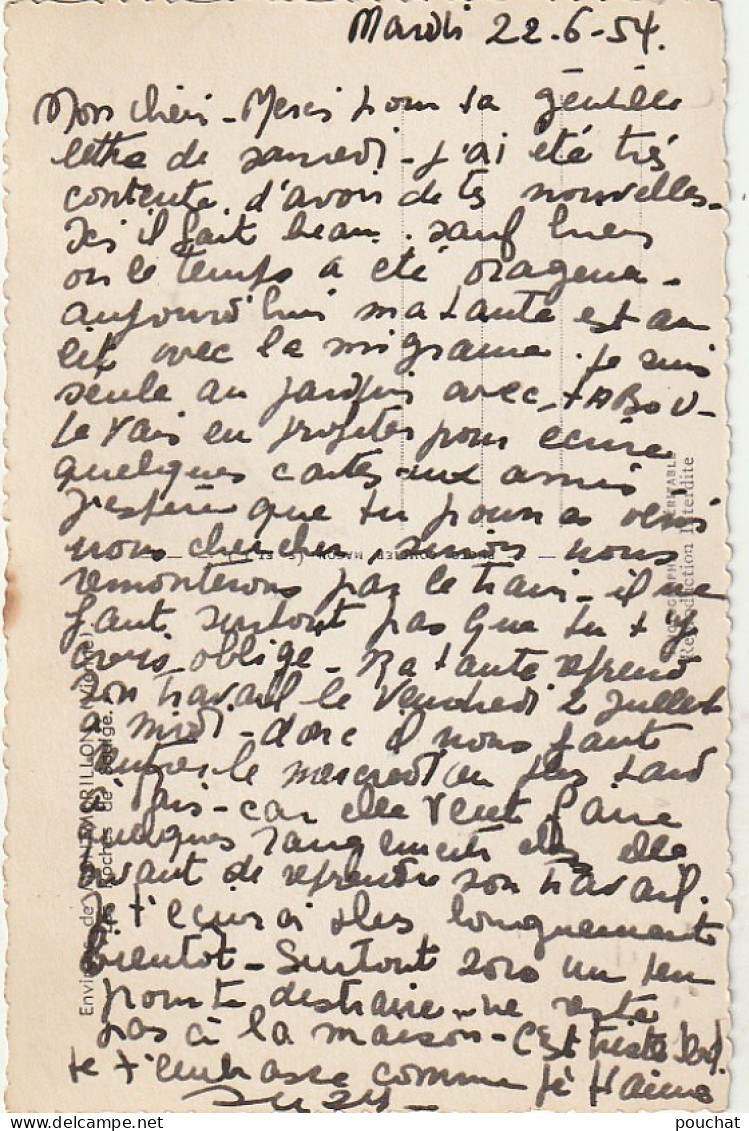 Mardi 22.6-54.
Mon chéri - Merci pour ta gentille
lettre de samedi - J'ai été très
contente d'avoir de tes nouvelles -
Ici il fait beau. sauf hier
où le temps a été orageux -
aujourd'hui ma tante est au
lit avec la migraine. Je suis
seule au jardin avec TABOU -
Je vais en profiter pour écrire
quelques cartes aux amis
J'espère que tu pourras venir
nous chercher, sinon nous
remonterons par le train - il ne
faut surtout pas que tu t'y
crois obligé - Ma tante reprend
son travail le Vendredi 2 Juillet
à midi - donc il nous faut
rentrer le mercredi au plus tard
à Paris - car elle veut faire
quelques rangements chez elle
avant de reprendre son travail.
Je t'écrirai plus longuement
bientôt - Surtout sors un peu
pour te distraire - ne reste
pas à la maison - C'est triste seul.
Je t'embrasse comme je t'aime
Suzy -
Environs de MONTMORILLON (Vienne)
Les Roches de
PHOTOGRAPHIE VERITABLE
Reproduction Interdite
MACON
pouchat